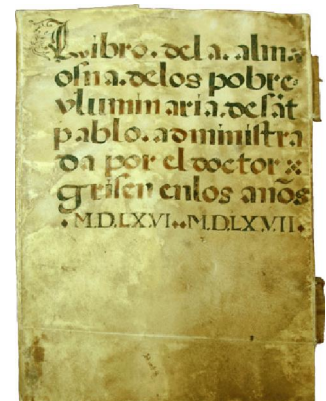 Libro. dela. alm
osna. delos pobre
yluminaria. de sāt
pablo. administra
da por el doctor
grisen enlos años
M.D.LXVI M.D.LXVII